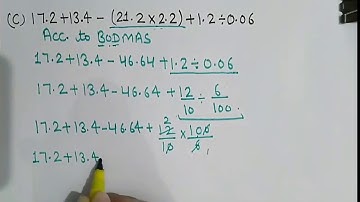 (C) 17.2+13.4 - (21.2×2.2) + 1.2÷0.06
Acc. to BODMAS
17.2+13.4 - 46.64 + 1.2÷0.06
17.2+13.4 - 46.64 + 12/10 ÷ 6/100
17.2+13.4 - 46.64 + 12/10 × 100/6
2
1
17.2+13.4